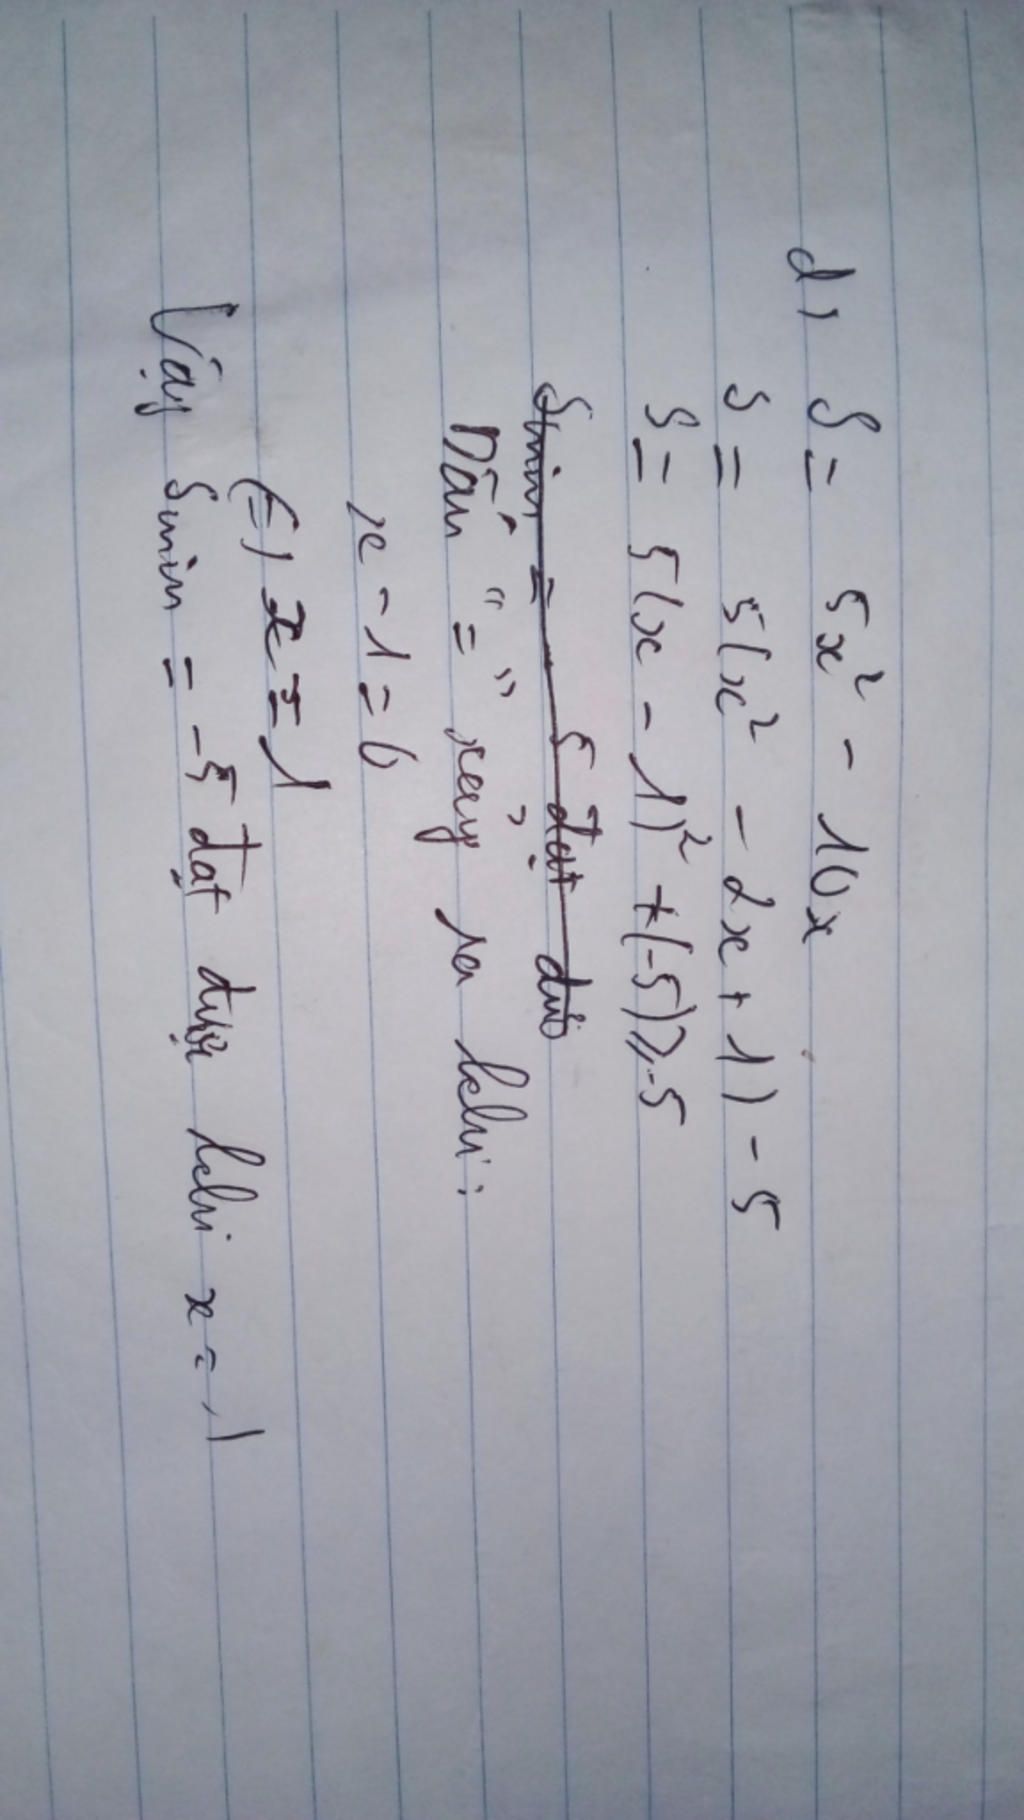 d) S = 5x² - 10x
S = 5(x² - 2x + 1) - 5
S = 5(x - 1)² + (-5) ≥ -5
Smin = - 5 đạt đưő
Dấu "=" xảy ra khi:
x - 1 = 0
(=) x = 1
Vậy Smin = -5 đạt được khi x = 1